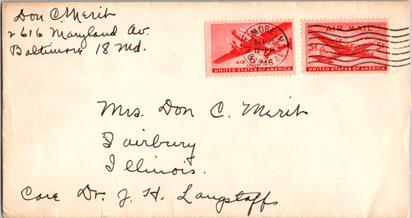 Don C. Merit
2616 Maryland Av.
Baltimore 18 Md.
AIR MAIL
UNITED STATES OF AMERICA
UNITED STATES OF AMERICA
Mrs. Don C. Merit
Fairbury
Illinois.
Care Dr. J. H. Langstaff